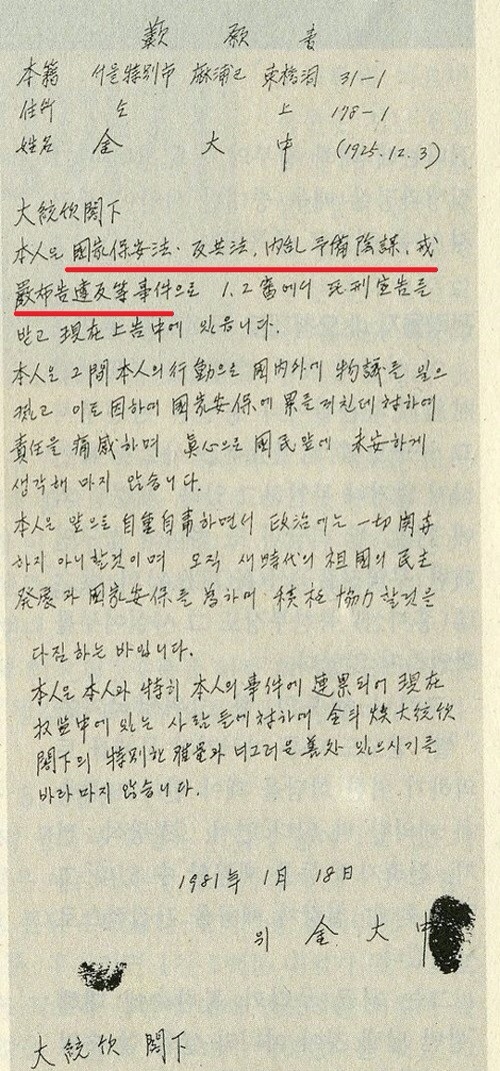 歎願書
本籍 서울特別市 麻浦区 東橋洞 31-1
住所 仝 上 178-1
姓名 金 大 中 (1925.12.3)
大統領閣下
本人은 国家保安法·反共法, 内乱予備陰謀, 戒
厳布告違反等事件으로 1.2審에서 死刑宣告를
받고 現在 上告中에 있읍니다.
本人은 그間 本人의 行動으로 国内外에 物議를 일으
켰고 이로 因하여 国家安保에 累를 끼친데 対하여
責任을 痛感하며 眞心으로 国民앞에 未安하게
생각해 마지 않습니다.
本人은 앞으로 自重自肅하면서 政治에는 一切 関与
하지 아니할것이며 오직 새時代의 祖国의 民主
発展과 国家安保를 為하여 積極 協力할것을
다짐하는 바입니다.
本人은 本人과 特히 本人의 事件에 連累되어 現在
収監中에 있는 사람들에 対하여 全斗煥大統領
閣下의 特別한 雅量과 너그러운 善処 있으시기를
바라마지 않습니다.
1981年 1月 18日
위 金 大 中
大統領 閣下